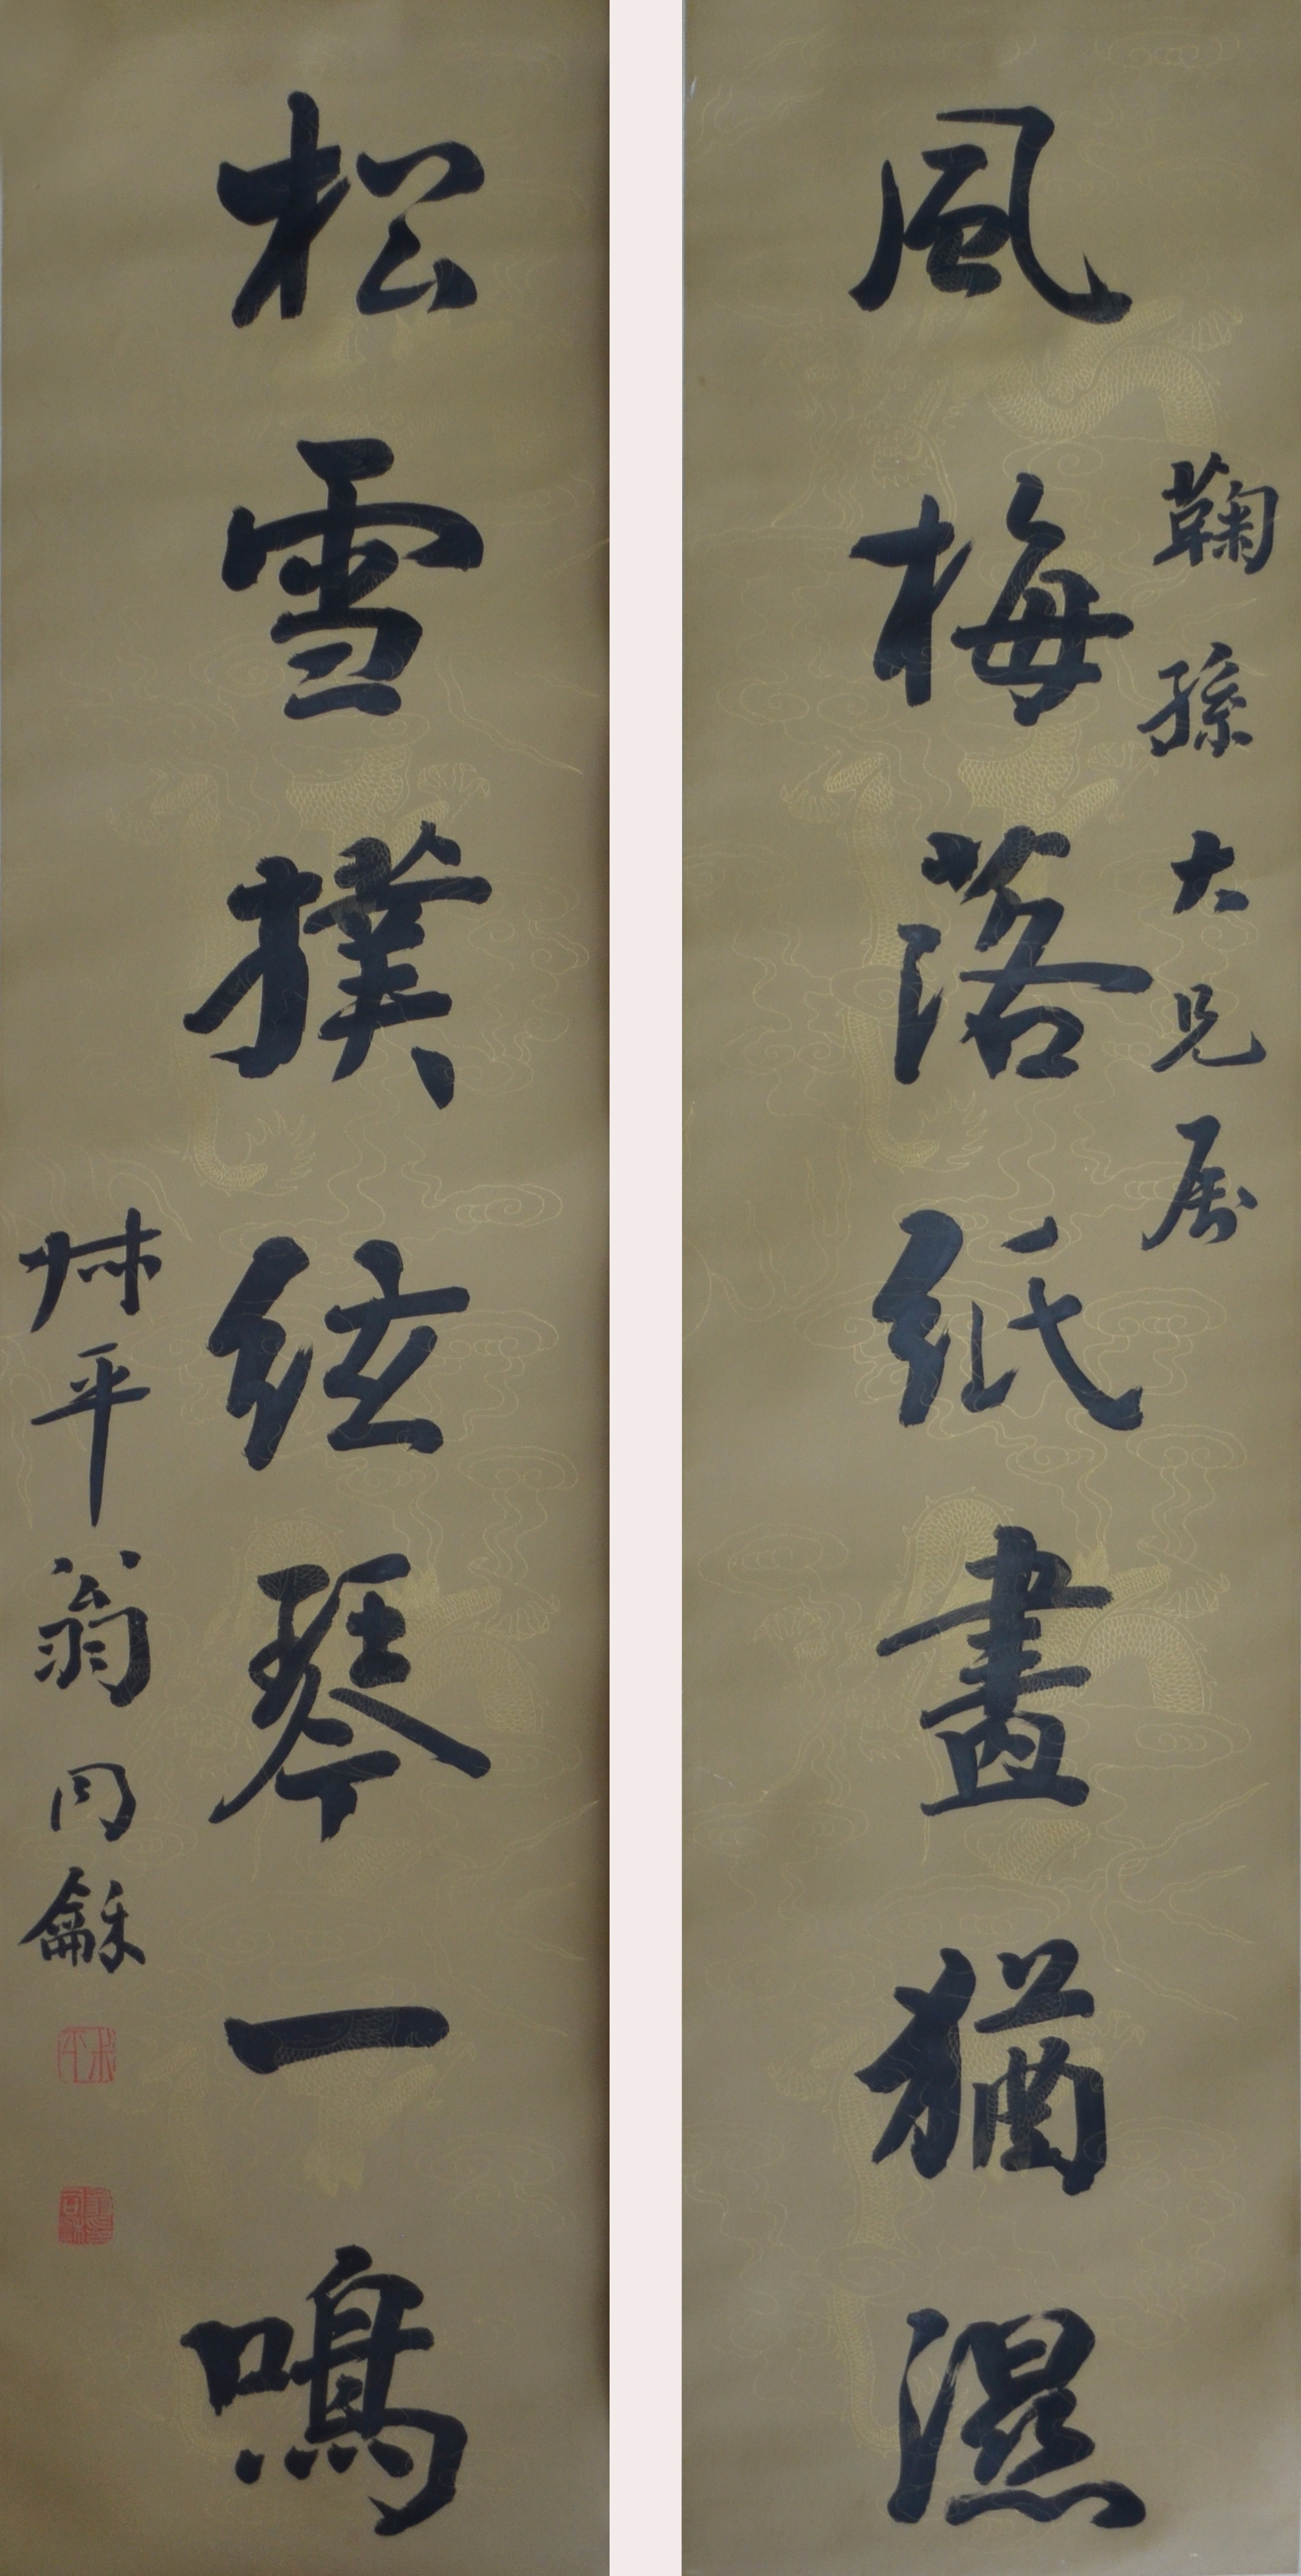 鞠孫大兄属
風梅落紙畫猶濕
松雪撲絃琴一鳴
叔平翁同龢
叔平